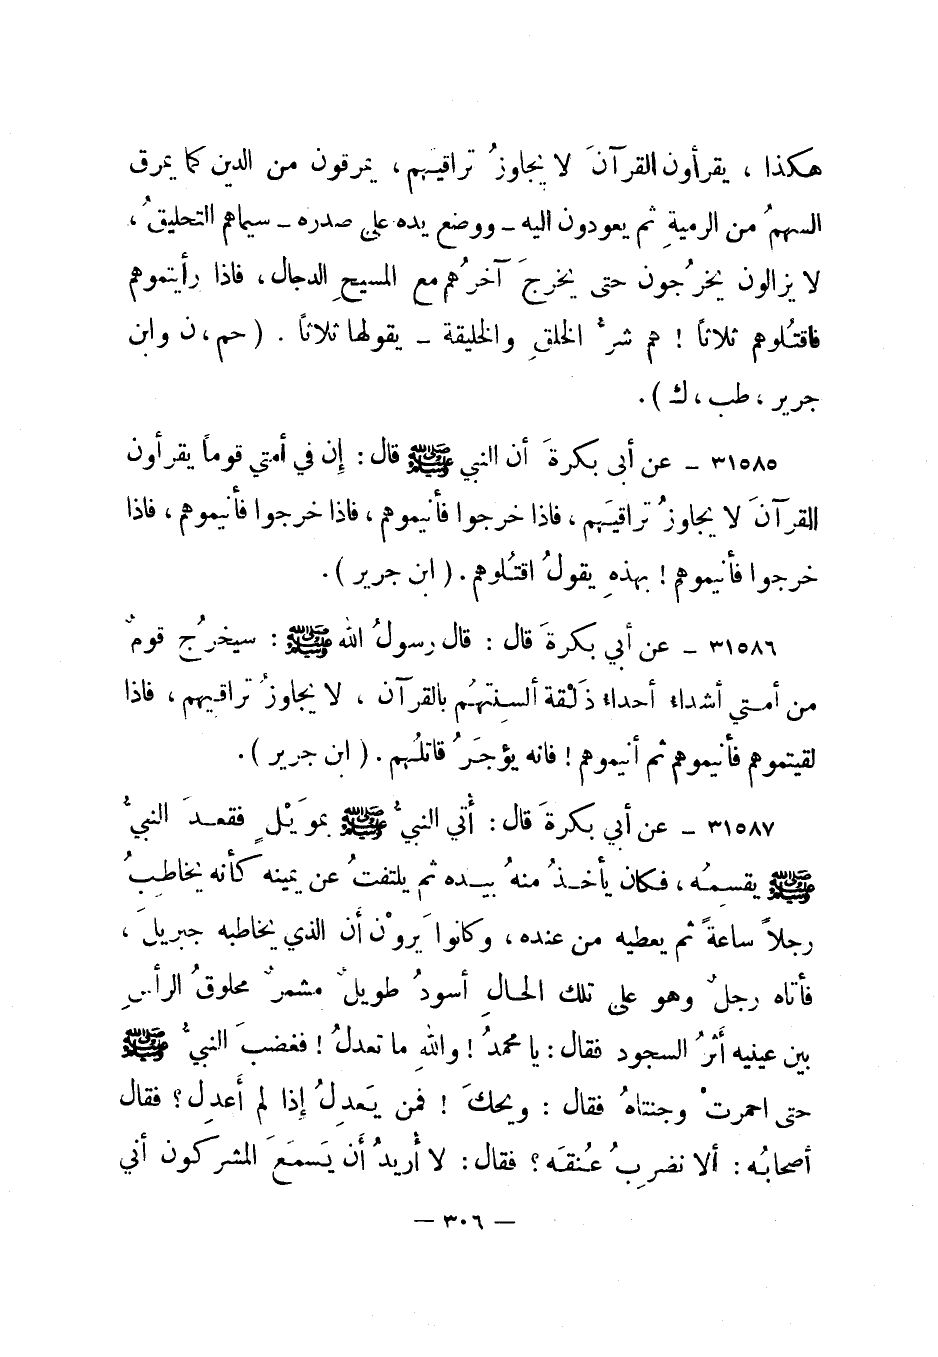 هكذا ، يقرأون القرآنَ لا يجاوزُ تراقيهم ، يمرقون من الدين كما يمرق
السهمُ من الرميةِ ثم يعودون اليه ـ ووضع يده على صدره ـ سيماهم التحليقُ ،
لا يزالون يخرُجون حتى يخرجَ آخرُهم مع المسيحِ الدجال ، فاذا رأيتموهم
فاقتُلوهم ثلاثاً ! هم شرُّ الخلقِ والخليقة ـ يقولها ثلاثاً . ( حم ، ن وابن
جرير ، طب ، ك ) .
٣١٥٨٥ ـ عن أبي بكرةَ أن النبي ﷺ قال : إن في أمتي قوماً يقرأون
القرآنَ لا يجاوزُ تراقيَهم ، فاذا خرجوا فأنيموهم ، فاذا خرجوا فأنيموهم ، فاذا
خرجوا فأنيموهم ! بهذهِ يقولُ اقتُلوهم . ( ابن جرير ) .
٣١٥٨٦ ـ عن أبي بكرةَ قال : قال رسولُ الله ﷺ : سيخرُج قومٌ
من أمتي أشداء أحداء ذَلْقة ألسِنتهُم بالقرآن ، لا يجاوزُ تراقيهم ، فاذا
لقيتموهم فأنيموهم ثم أنيموهم ! فانه يؤجَرُ قاتلُهم . ( ابن جرير ) .
٣١٥٨٧ ـ عن أبي بكرةَ قال : أُتي النبيُّ ﷺ بموَيْلٍ فقعدَ النبيُّ
ﷺ يقسِمُه ، فكان يأخذُ منهُ بيده ثم يلتفتُ عن يمينه كأنه يخاطِبُ
رجلاً ساعةً ثم يعطيه من عنده ، وكانوا يَروْن أن الذي يخاطبه جبريلَ ،
فأتاه رجلٌ وهو على تلك الحالِ أسودُ طويلٌ مشمرٌ محلوقُ الرأسِ
بين عينيه أَثرُ السجود فقال : يا محمدُ ! واللهِ ما تعدلُ ! فغضبَ النبيُّ ﷺ
حتى احمرتْ وجنتاهُ فقال : ويحكَ ! فمن يَعدِلُ إذا لم أَعدِل ؟ فقال
أصحابُه : ألا نضرِبُ عُنقَه ؟ فقال : لا أُريدُ أن يَسمَعَ المشركون أني
— ٣٠٦ —